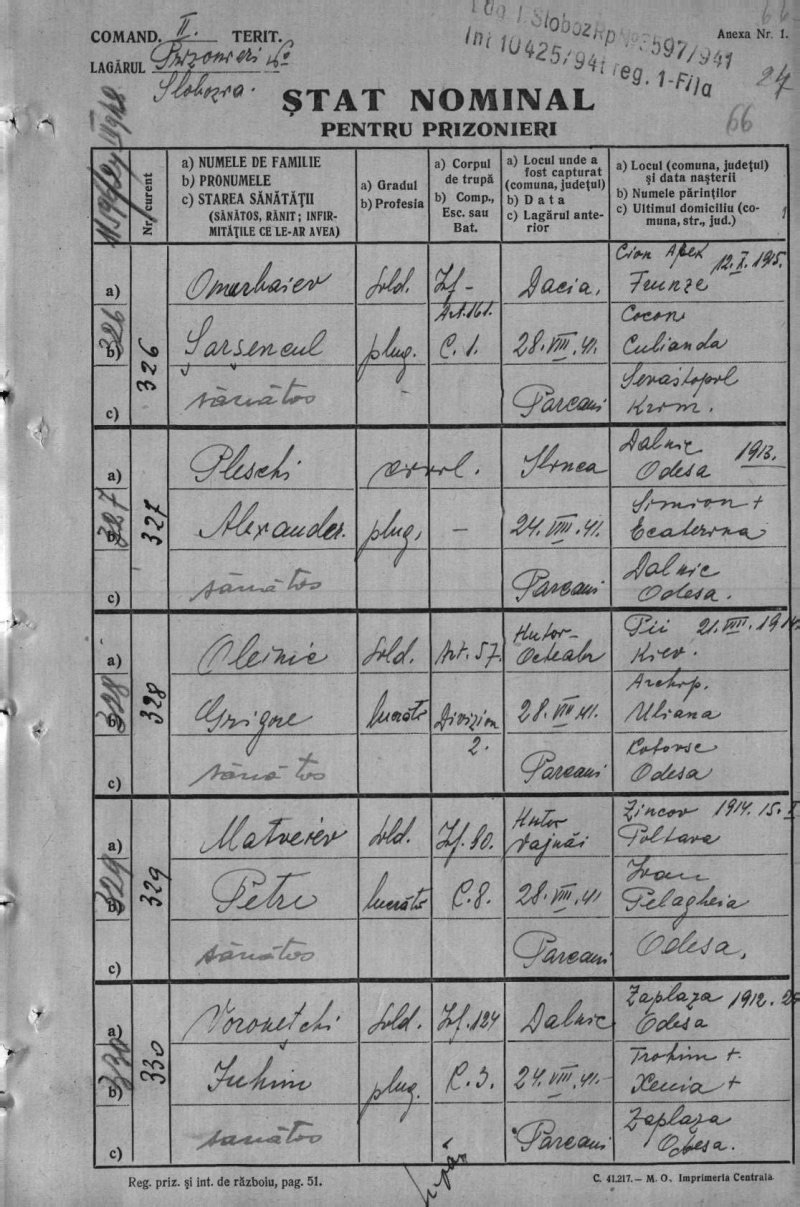 COMAND. II. TERIT.
LAGĂRUL Prizonieri No
Slobozia.
Int 10425/941 reg. 1-Fila
Anexa Nr. 1.
24
66
ȘTAT NOMINAL
PENTRU PRIZONIERI
Nr. curent
a) NUMELE DE FAMILIE
b) PRONUMELE
c) STAREA SĂNĂTĂȚII
(SĂNĂTOS, RĂNIT; INFIR-
MITĂȚILE CE LE-AR AVEA)
a) Gradul
b) Profesia
a) Corpul
de trupă
b) Comp.,
Esc. sau
Bat.
a) Locul unde a
fost capturat
(comuna, județul)
b) Data
c) Lagărul ante-
rior
a) Locul (comuna, județul)
și data nașterii
b) Numele părinților
c) Ultimul domiciliu (co-
muna, str., jud.)
326
326
a) Omarbaiev Sold. Inf- Dacia. 12.X.1915.
Frunze
Art.161.
b) Șarșencul plug. C.1. 28.VIII.41. Cocon
Culianda
c) sănătos Parcani Sevastopol
Krim.
327
327
a) Pleschi civil. Dalnic 1913.
Odesa
b) Alexander. plug. — 24.VIII.41. Simion +
Ecaterina
c) sănătos Parcani Dalnic
Odesa.
328
328
a) Oleinic Sold. Art. 57. Hutor- Pii 21.VIII.1914.
Kiev.
b) Grigore lucrăt. Divizion 2. 28.VIII.41. Archip.
Uliana
c) sănătos Parcani Kotovsc
Odesa
329
329
a) Matveiev Sold. Inf. 90. Hutor Zincov 1914. 15.X
Poltava
b) Petre lucrăt. C.8. 28.VIII.41 Ivan
Pelagheia
c) sănătos Parcani Odesa.
330
330
a) Voronețchi Sold. Inf. 124 Dalnic Zaplaza 1912.
Odesa
b) Iuhim plug. C.3. 24.VIII.41.- Trohim +
Xenia +
c) sanătos Parcani Zaplaza
Odesa.
Reg. priz. și int. de război, pag. 51.
C. 41.217.— M. O., Imprimeria Centrala